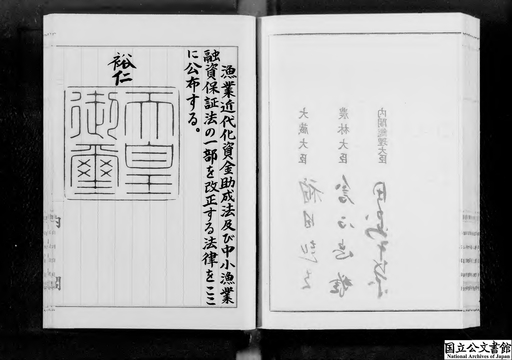 漁業近代化資金助成法及び中小漁業
融資保証法の一部を改正する法律をここ
に公布する。
裕仁
天皇
御璽
内閣
内閣総理大臣
農林大臣
大蔵大臣
国立公文書館
National Archives of Japan